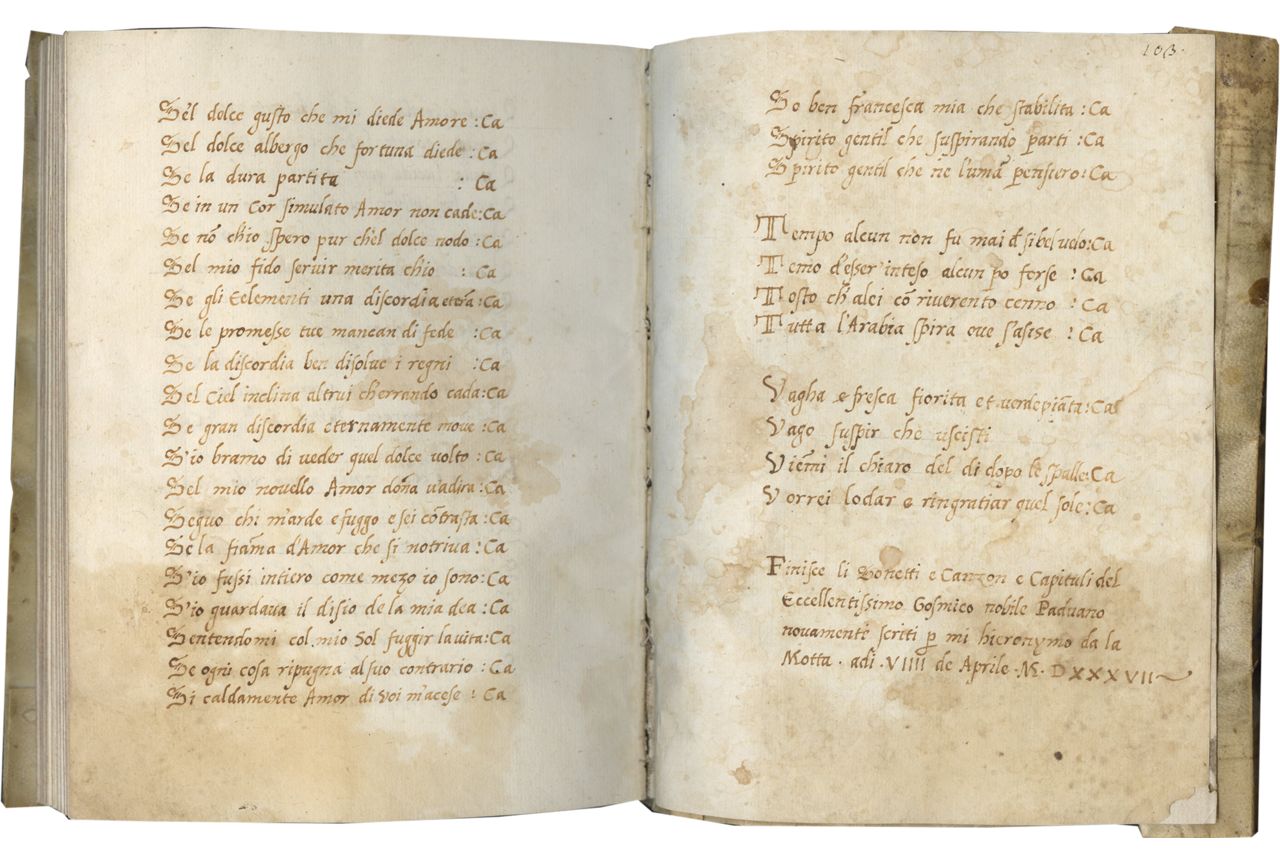 Se'l dolce gusto che mi diede Amore : Ca
Sel dolce albergo che fortuna diede : Ca
Se la dura partita : Ca
Se in un Cor simulato Amor non cade: Ca
Se nō ch'io spero pur ch'el dolce nodo : Ca
Sel mio fido servir merita chio : Ca
Se gli Eelementi una discordia eterā : Ca
Se le promesse tue mancan di fede : Ca
Se la discordia ben disolve i regni : Ca
Sel Ciel inclina altrui ch'errando cada: Ca
Se gran discordia eternamente move : Ca
S'io bramo di veder quel dolce volto : Ca
Sel mio novello Amor doña v'adira : Ca
Seguo chi m'arde e fuggo e sei cōtrasta : Ca
Se la fiam̄a d'Amor che si notriva : Ca
S'io fussi intiero come mezo io sono: Ca
S'io guardava il disio de la mia dea : Ca
Sentendomi col mio Sol fuggir la vita: Ca
Se ogni cosa ripugna al suo contrario : Ca
Si caldamente Amor di voi m'acese : Ca
103.
So ben francesca mia che stabilita : Ca
Spirito gentil che suspirando parti : Ca
Spirito gentil che ne l'umā pensiero: Ca
Tempo alcun non fu mai đ si bel velo: Ca
Temo d'esser inteso alcun po forse : Ca
Tosto ch'a lei cō riverento cenno : Ca
Tutta l'Arabia spira ove s'asise : Ca
Vagha e fresca fiorita et verde piāta: Ca
Vago suspir che uscisti
Viem̄i il chiaro del di dopo le spalle: Ca
Vorrei lodar e ringratiar quel sole: Ca
Finisce li Sonetti e Canzon e Capituli del
Eccellentissimo Gosmico nobile Paduano
novamente scriti p̱ mi hieronymo da la
Motta . adi . VIIII de Aprile . M. DXXXVII